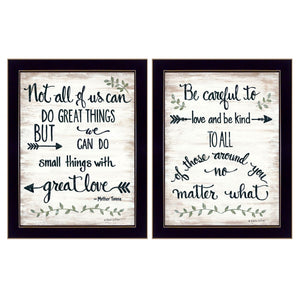 Not all of us can
DO GREAT THINGS
BUT we
CAN DO
small things with
great love
~ Mother Teresa
Be careful to
love and be kind
TO ALL
of those around you
no
matter what